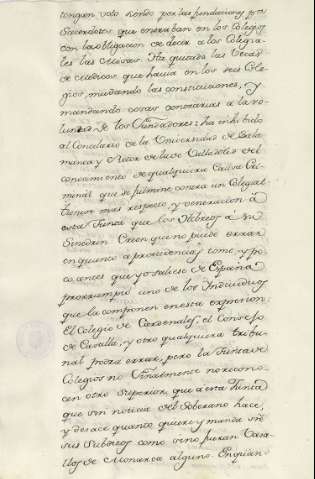 tenguen voto siendo por las fundaciones para
Sacerdotes que entraban en los Colegios
con la obligacion de decir a los Colegia-
les las Missas. Ha quitado las Becas
de Medicos que havia en los seis Cole-
gios, mudando las constituciones, y
mandando cosas contrarias a la vo-
luntad de los Fundadores: ha inhibido
al Cancelario de la Universidad de Sala-
manca y Rector de la de Valladolid del
conocimiento de qualquiera Causa Cri-
minal que se fulmine contra un Colegial:
tienen mas respeto, y veneracion a
esta Junta que los Hebreos a su
Sinedrin. Creen que no puede errar
en quanto a providencias tome, y po-
co antes que yo saliese de España
prorrumpiò uno de los Individuos
que la componen en esta expresion:
El Colegio de Cardenales, el Consejo
de Castilla, y otro qualquiera tribu-
nal podrà errar, pero la Junta de
Colegios no. Finalmente no recono-
cen otro Superior, que a esta Junta
que sin noticia del Soberano hace,
y desace quanto quiere y manda en
sus Subditos como sino fueran Vasa-
llos de Monarca alguno.